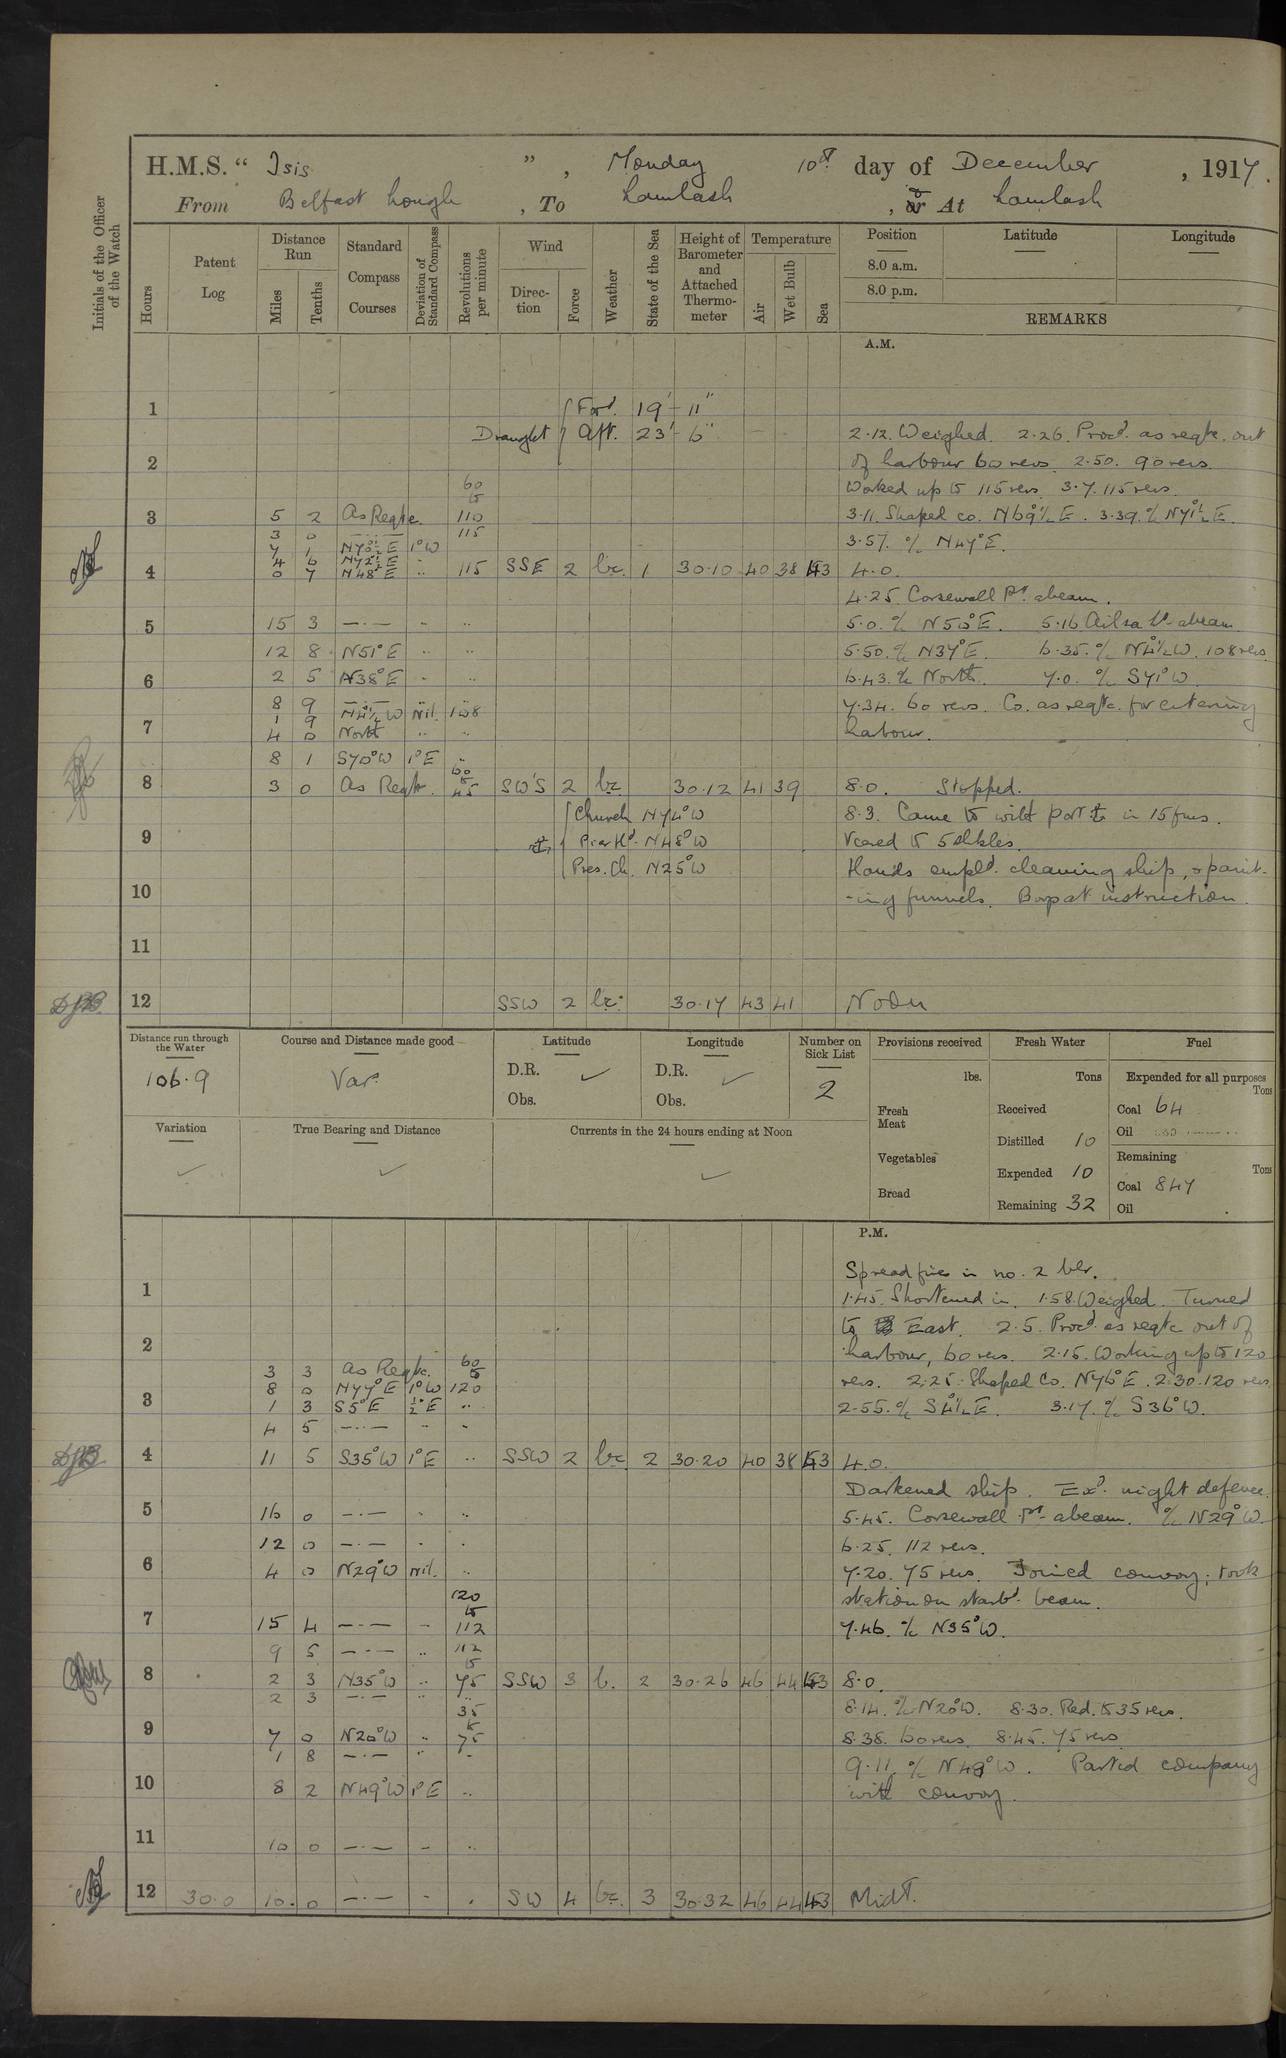 H.M.S. " Isis ", Monday 10th day of December, 1917.
From Belfast Lough, To Lamlash, or At Lamlash
Initials of the Officer of the Watch
Hours
Patent Log
Distance Run
Miles
Tenths
Standard Compass Courses
Deviation of Standard Compass
Revolutions per minute
Wind
Direction
Force
Weather
State of the Sea
Height of Barometer and Attached Thermometer
Temperature
Air
Wet Bulb
Sea
Position
Latitude
Longitude
8.0 a.m.
8.0 p.m.
REMARKS
A.M.
1
Draught { Ford. 19'-11"
Aft. 23'-6"
2.12. Weighed. 2.26. Procd. as reqte. out
2 of harbour 60 revs. 2.50. 90 revs.
60 to Worked up to 115 revs. 3.7. 115 revs.
3 5 2 As Reqte. 110 3.11. Shaped co. N69½E. 3.39. % N71½E.
3 0 —·— 115
7 1 N70½°E 1°W 3.57. % N47°E.
4 6 N72½°E "
4 0 7 N48°E " 115 SSE 2 bc. 1 30.10 40 38 43 4.0.
4.25. Corsewall Pt. abeam.
5 15 3 —·— " " 5.0. % N50°E. 5.16 Ailsa Cr. abeam.
12 8 N51°E " " 5.50. % N37°E. 6.35. % N4½°W. 108 revs.
6 2 5 N38°E " " 6.43. % North. 7.0. % S71°W.
8 9 —·— " " 7.34. 60 revs. Co. as reqte. for entering
1 9 N4½°W Nil. 108
7 4 0 North " " harbour.
8 1 S70°W 1°E "
8 3 0 As Reqte. 60 to 45 SW'S 2 bc. 30.12 41 39 8.0. Stopped.
{ Church N74°W 8.3. Came to with port in 15 fms.
9 Pier Hd. N48°W Veered to 5 shkles.
Pres. Ch. N25°W Hands empld. cleaning ship, & paint-
10 -ing funnels. Boys at instruction.
11
12 SSW 2 bc. 30.17 43 41 Noon
Distance run through the Water
106.9
Course and Distance made good
Var.
Latitude
D.R. ✓
Obs.
Longitude
D.R. ✓
Obs.
Number on Sick List
2
Variation
✓
True Bearing and Distance
✓
Currents in the 24 hours ending at Noon
✓
Provisions received
lbs.
Fresh Meat
Vegetables
Bread
Fresh Water
Tons
Received
Distilled 10
Expended 10
Remaining 32
Fuel
Expended for all purposes
Tons
Coal 64
Oil
Remaining
Tons
Coal 847
Oil
P.M.
Spread fires in no. 2 blr.
1 1.45. Shortened in. 1.58. Weighed. Turned
2 to East. 2.5. Procd. as reqte. out of
harbour, 60 revs. 2.15. Working up to 120
3 3 As Reqte. 60 to
8 0 N77°E 1°W 120 revs. 2.25. Shaped Co. N76°E. 2.30. 120 revs.
3 1 3 S5°E ½°E " 2.55. % S4½E. 3.17. % S36°W.
4 5 —·— " "
4 11 5 S35°W 1°E " SSW 2 bc. 2 30.20 40 38 43 4.0.
Darkened ship. Exd. night defence.
5 16 0 —·— " " 5.45. Corsewall Pt. abeam. % N29°W.
12 0 —·— " " 6.25. 112 revs.
6 4 0 N29°W nil. " 7.20. 75 revs. Joined convoy; took
120 to station on starbd. beam.
7 15 4 —·— " 112 7.46. % N35°W.
9 5 —·— " 112 to
8 2 3 N35°W " 75 SSW 3 b. 2 30.26 46 44 43 8.0.
2 3 —·— " " 8.14. % N20°W. 8.30. Red. to 35 revs.
35 to
9 7 0 N20°W " 75 8.38. 60 revs. 8.45. 75 revs.
1 8 —·— " " 9.11. % N48°W. Parted company
10 8 2 N49°W 1°E " with convoy.
11 10 0 —·— " "
12 30.0 10. 0 —·— " " SW 4 bc. 3 30.32 46 44 43 Midt.